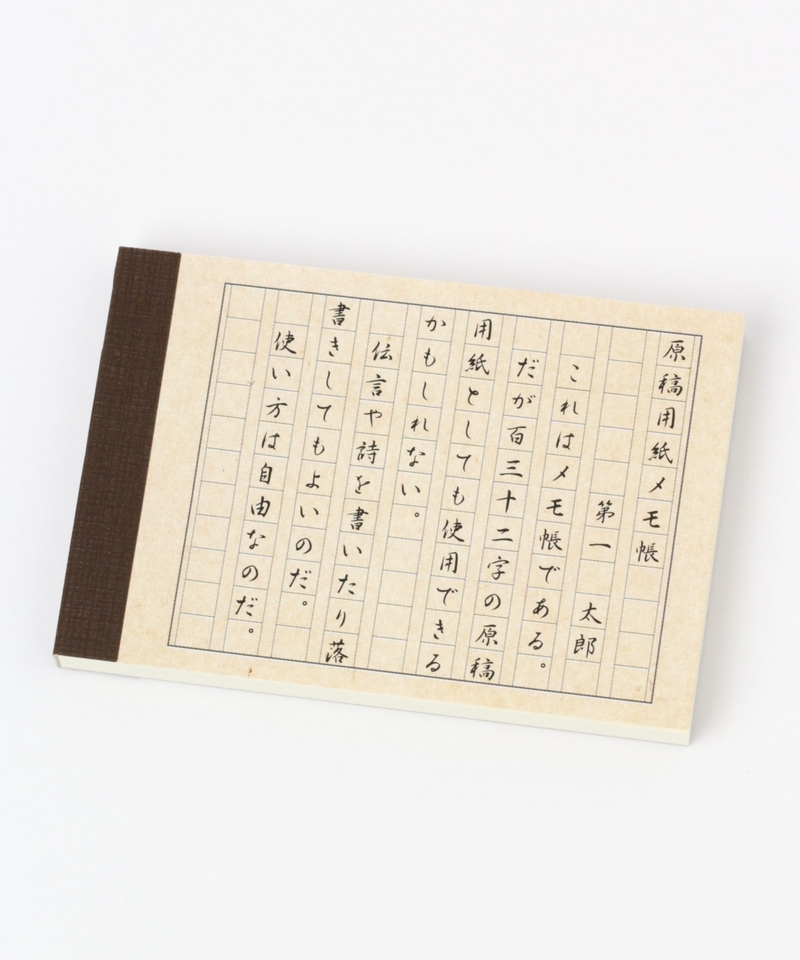 原稿用紙メモ帳
第一　太郎
これはメモ帳である。
だが百三十二字の原稿
用紙としても使用できる
かもしれない。
伝言や詩を書いたり落
書きしてもよいのだ。
使い方は自由なのだ。